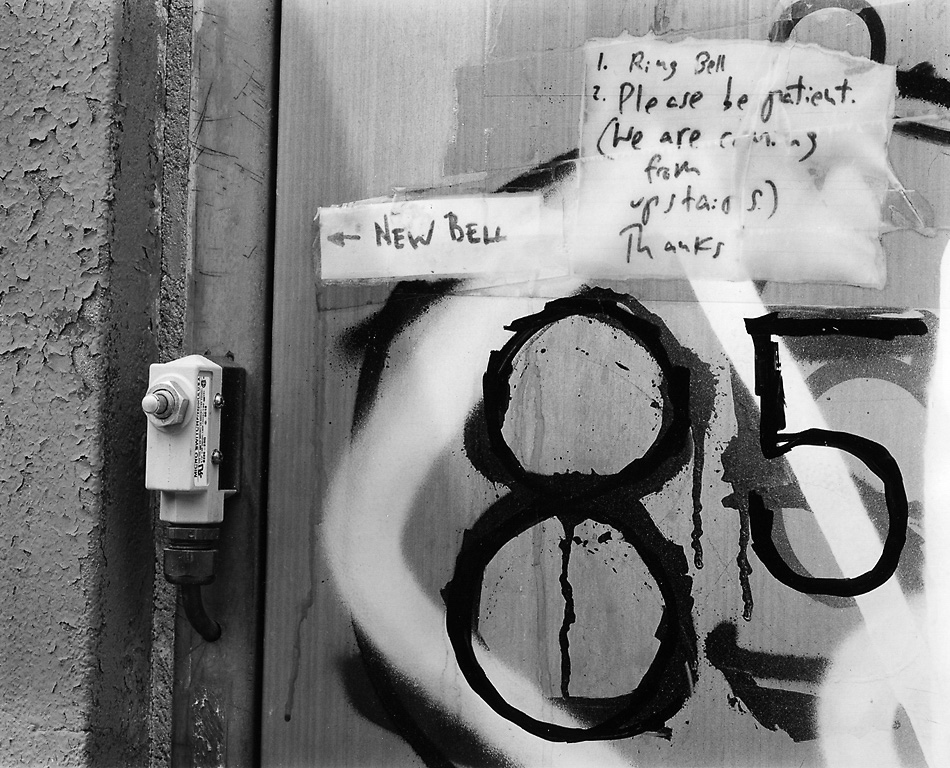 1. Ring Bell
2. Please be patient.
(We are coming
from
upstairs.)
Thanks
← NEW BELL
85